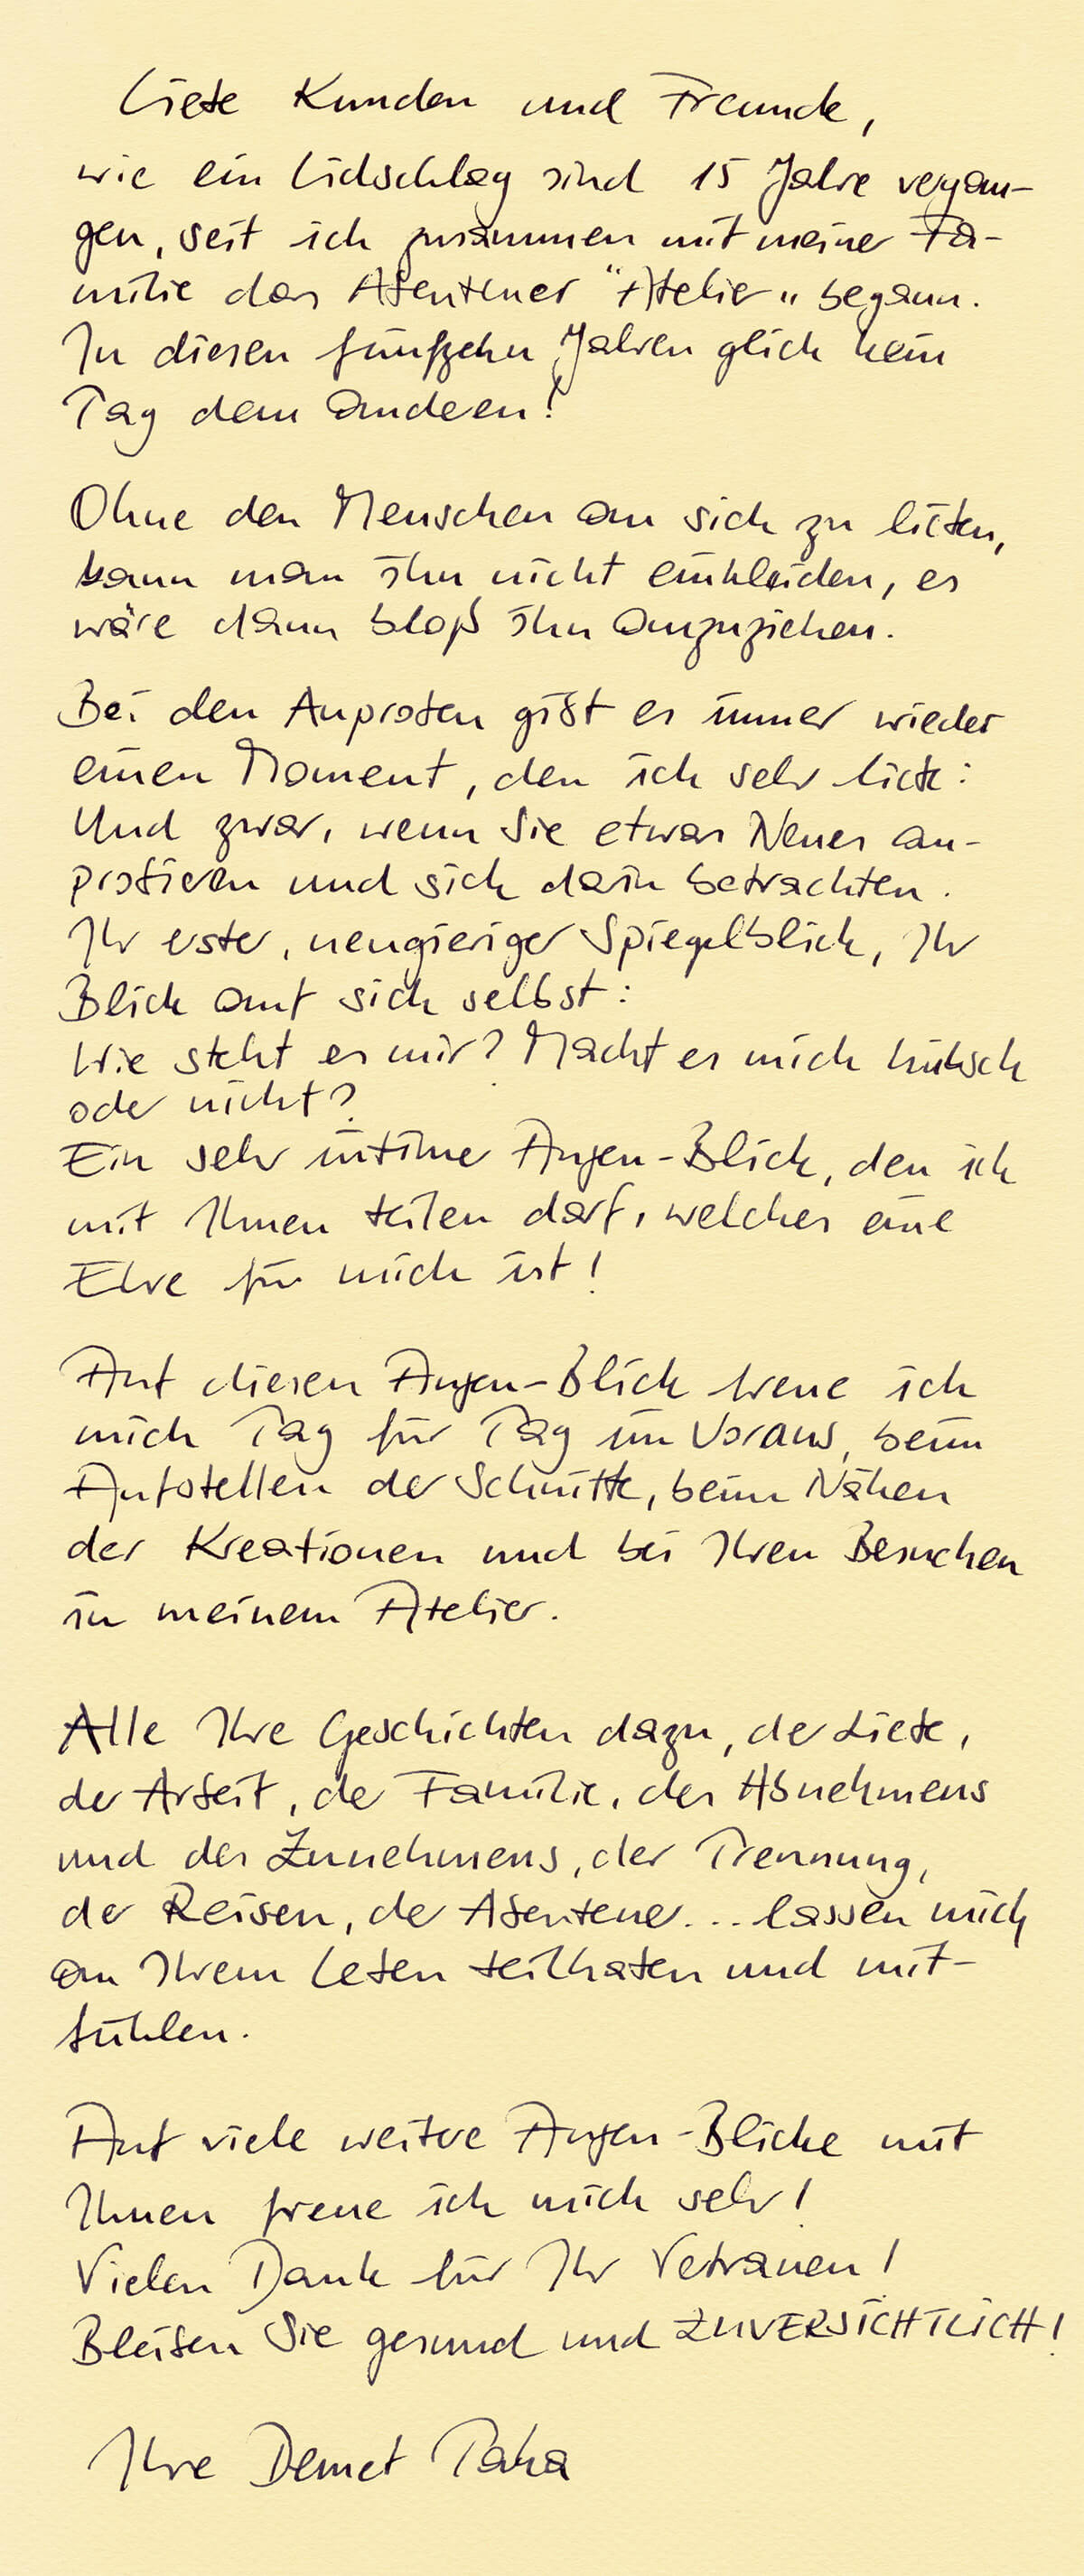 Liebe Kunden und Freunde,
wie ein Lidschlag sind 15 Jahre vergan-
gen, seit ich zusammen mit meiner Fa-
milie das Abenteuer "Atelier" begann.
In diesen fünfzehn Jahren glich kein
Tag dem anderen!
Ohne den Menschen an sich zu lieben,
kann man ihn nicht einkleiden, es
wäre dann bloß ihn anzuziehen.
Bei den Anproben gibt es immer wieder
einen Moment, den ich sehr liebe:
Und zwar, wenn Sie etwas Neues an-
probieren und sich darin betrachten.
Ihr erster, neugieriger Spiegelblick, Ihr
Blick auf sich selbst:
Wie steht es mir? Macht es mich hübsch
oder nicht?
Ein sehr intimer Augen-Blick, den ich
mit Ihnen teilen darf, welches eine
Ehre für mich ist!
Auf diesen Augen-Blick freue ich
mich Tag für Tag im Voraus, beim
Aufstellen der Schnitte, beim Nähen
der Kreationen und bei Ihren Besuchen
in meinem Atelier.
Alle Ihre Geschichten dazu, der Liebe,
der Arbeit, der Familie, des Abnehmens
und des Zunehmens, der Trennung,
der Reisen, der Abenteuer... lassen mich
an Ihrem Leben teilhaben und mit-
fühlen.
Auf viele weitere Augen-Blicke mit
Ihnen freue ich mich sehr!
Vielen Dank für Ihr Vertrauen!
Bleiben Sie gesund und ZUVERSICHTLICH!
Ihre Demet Taka